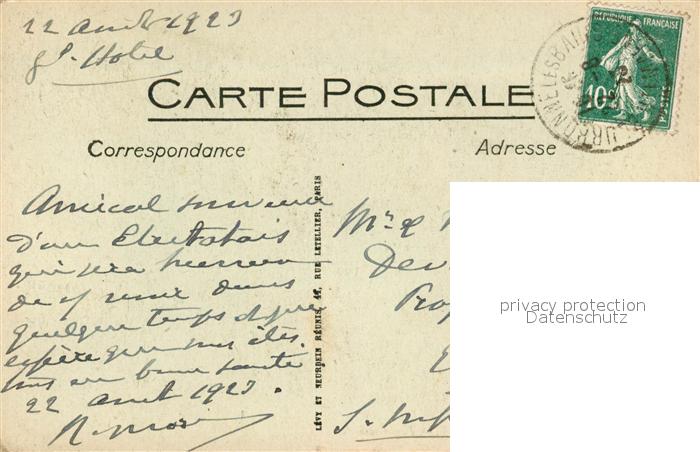 22 août 1923
Gd Hotel
CARTE POSTALE
Correspondance
Adresse
RÉPUBLIQUE FRANÇAISE
10c
POSTES
BOURBONNE LES BAINS
Amical souvenir
d'un
qui sera heureux
de dans
quelque temps
espère que vous êtes
tous en bonne santé
22 août 1923.
LÉVY ET NEURDEIN RÉUNIS, 44, RUE LETELLIER, PARIS
Mr &
Dev
Prop
S.
privacy protection
Datenschutz